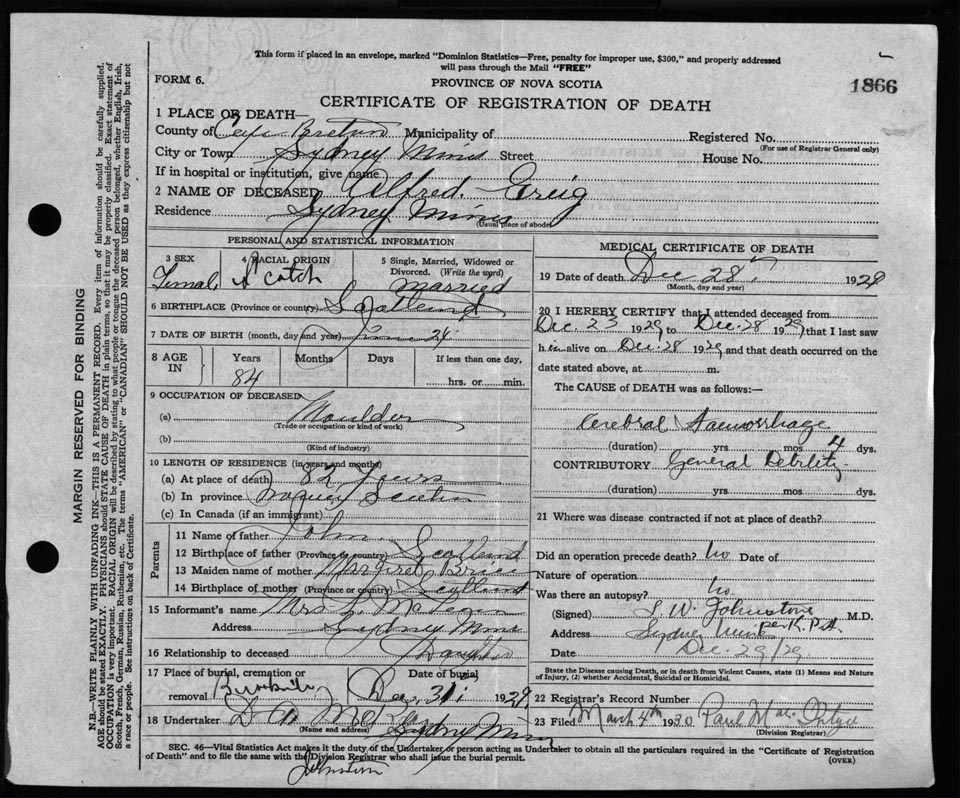 This form if placed in an envelope, marked "Dominion Statistics—Free, penalty for improper use, $300," and properly addressed
will pass through the Mail "FREE"
FORM 6.
PROVINCE OF NOVA SCOTIA
1866
CERTIFICATE OF REGISTRATION OF DEATH
1 PLACE OF DEATH—
County of Cape Breton Municipality of
Registered No.
(For use of Registrar General only)
City or Town Sydney Mines Street
House No.
If in hospital or institution, give name
2 NAME OF DECEASED Alfred Greig
Residence Sydney Mines
(Usual place of abode)
PERSONAL AND STATISTICAL INFORMATION
3 SEX
4 RACIAL ORIGIN
5 Single, Married, Widowed or
Divorced. (Write the word)
Female Scotch married
6 BIRTHPLACE (Province or country) Scotland
7 DATE OF BIRTH (month, day and year) 24
8 AGE IN
Years Months Days If less than one day,
84
hrs. or min.
9 OCCUPATION OF DECEASED
(a) Moulder
(Trade or occupation or kind of work)
(b)
(Kind of industry)
10 LENGTH OF RESIDENCE (in years and months)
(a) At place of death) 82 years
(b) In province
(c) In Canada (if an immigrant)
Parents
11 Name of father John
12 Birthplace of father (Province or country) Scotland
13 Maiden name of mother Margret Brice
14 Birthplace of mother (Province or country) Scotland
15 Informant's name Mrs
Address Sydney Mines
16 Relationship to deceased Daughter
17 Place of burial, cremation or
removal
Date of burial
Dec. 31 1929
18 Undertaker
(Name and address) Sydney Mines
Johnston
MEDICAL CERTIFICATE OF DEATH
19 Date of death Dec 28 1929
(Month, day and year)
20 I HEREBY CERTIFY that I attended deceased from
Dec. 23 1929 to Dec. 28 1929, that I last saw
him alive on Dec. 28 1929 and that death occurred on the
date stated above, at m.
The CAUSE of DEATH was as follows:—
Cerebral Haemorrhage
(duration) yrs mos 4 dys.
CONTRIBUTORY General Debility
(duration) yrs mos dys.
21 Where was disease contracted if not at place of death?
Did an operation precede death? no Date of
Nature of operation
Was there an autopsy? no
(Signed) L. W. Johnstone M.D.
per K.
Address Sydney Mines
Date Dec. 29/29
State the Disease causing Death, or in death from Violent Causes, state (1) Means and Nature
of Injury, (2) whether Accidental, Suicidal or Homicidal.
22 Registrar's Record Number
23 Filed March 4th 1930 Paul
(Division Registrar)
SEC. 46—Vital Statistics Act makes it the duty of the Undertaker or person acting as Undertaker to obtain all the particulars required in the "Certificate of Registration
of Death" and to file the same with the Division Registrar who shall issue the burial permit.
(OVER)
MARGIN RESERVED FOR BINDING
N.B.—WRITE PLAINLY WITH UNFADING INK—THIS IS A PERMANENT RECORD. Every item of information should be carefully supplied.
AGE should be stated EXACTLY. PHYSICIANS should STATE CAUSE OF DEATH in plain terms, so that it may be properly classified. Exact statement of
OCCUPATION is very important. RACIAL ORIGIN will be described by stating to what people or tongue the deceased person belonged, whether English, Irish,
Scotch, French, German, Russian, Ruthenian, etc. The terms "AMERICAN" or "CANADIAN" SHOULD NOT BE USED as they express citizenship but not
a race or people. See instructions on back of Certificate.